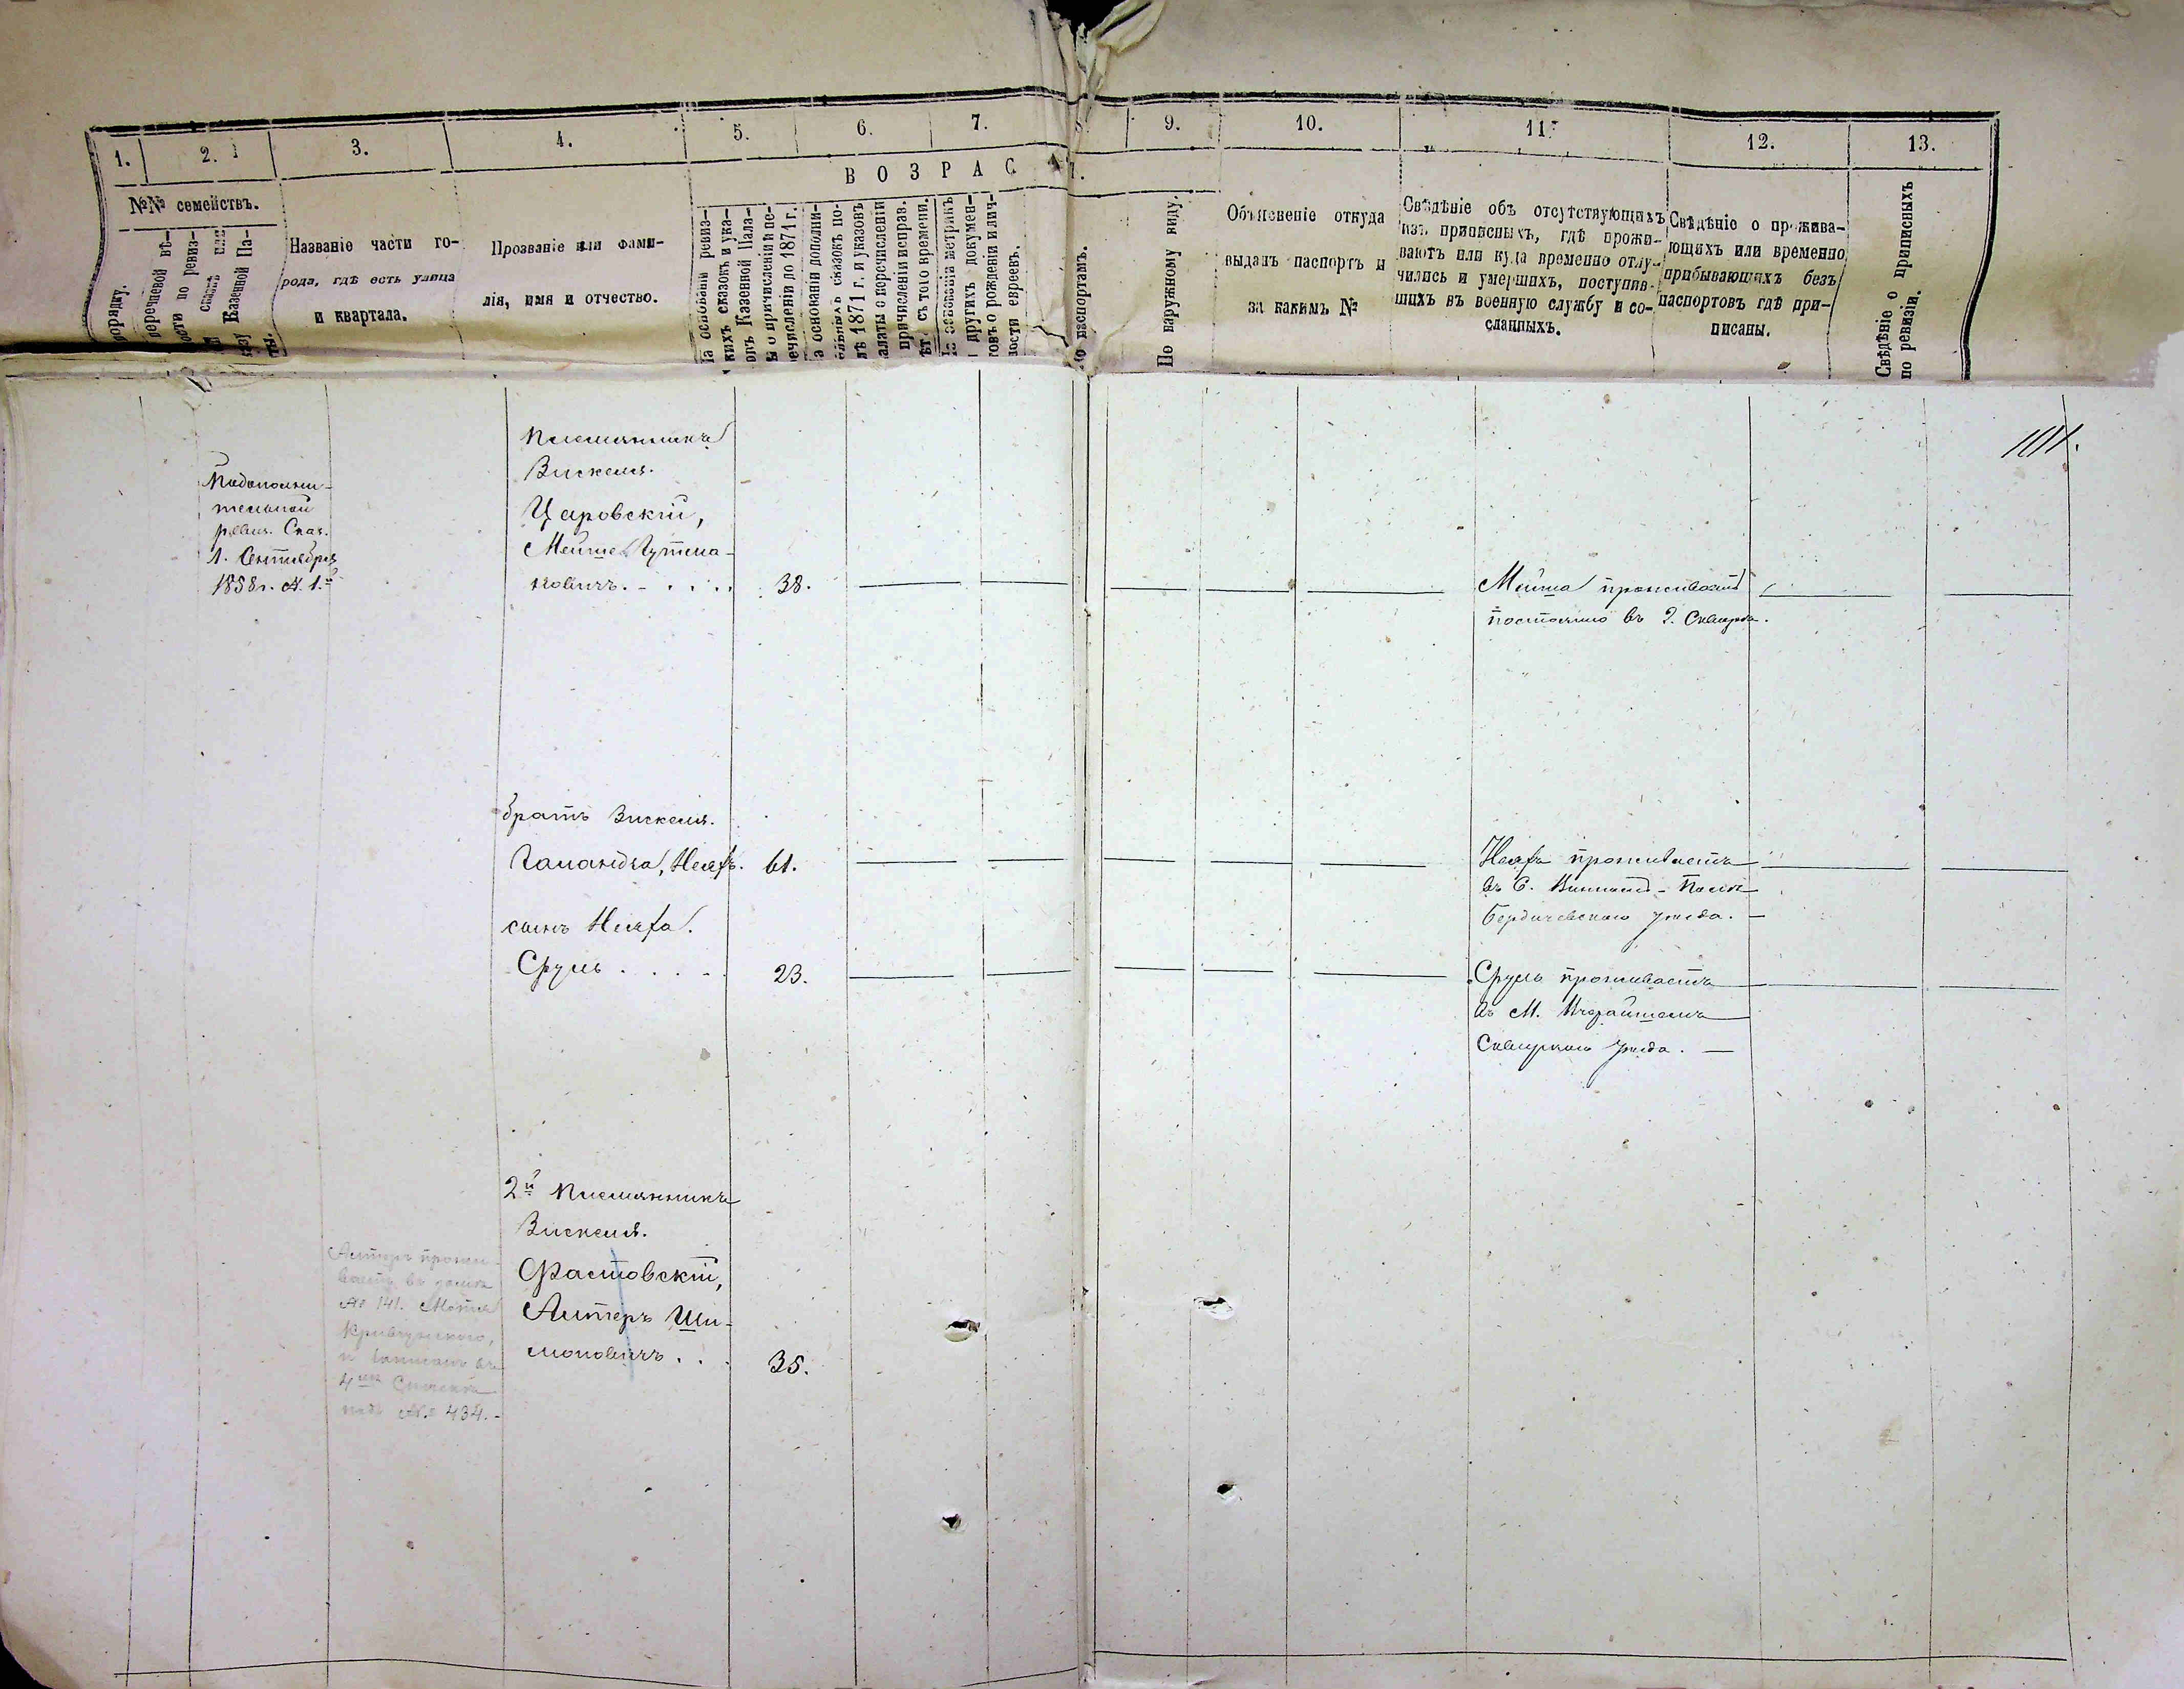 1.
2.
3.
4.
5.
6.
7.
8.
9.
10.
11.
12.
13.
ВОЗРАСТ.
№№ семействъ.
порядку.
перечневой вѣ-
мости по ревиз-
сказкѣ или
Казенной Па-
ты.
Названіе части го-
рода, гдѣ есть улица
и квартала.
Прозваніе или фами-
лія, имя и отчество.
На основаніи ревиз-
скихъ сказокъ и ука-
зовъ Казенной Пала-
ты о причисленіи и пе-
речисленіи до 1871 г.
На основаніи дополни-
тельныхъ сказокъ по-
слѣ 1871 г. и указовъ
палаты о перечисленіи
причисленіи исправ.
лѣтъ съ того времени.
На основаніи метрикъ
и другихъ докумен-
товъ о рожденіи и лич-
ности евреевъ.
По паспортамъ.
По наружному виду.
Объясненіе откуда
выданъ паспортъ и
за какимъ №
Свѣдѣніе объ отсутствующихъ
изъ приписныхъ, гдѣ прожи-
ваютъ или куда временно отлу-
чились и умершихъ, поступив-
шихъ въ военную службу и со-
сланныхъ.
Свѣдѣніе о прожива-
ющихъ или временно
прибывающихъ безъ
паспортовъ гдѣ при-
писаны.
Свѣдѣніе о приписныхъ
по ревизіи.
101.
Подополни-
тельной
ревиз. Сказ.
1. Сентября
1858 г. №. 1.й
Племянникъ
Зискеля.
Царовскій,
Мейше Гутма-
новичъ. - . . . . 38.
Мейша проживаетъ
постоянно въ г. Сквирѣ.
братъ Зискеля.
Галандза, Неяхъ. 61.
Неяхъ проживаетъ
въ С.
Бердичевскаго уѣзда. —
сынъ Неяха.
Сруль . . . . 23.
Сруль проживаетъ
въ М.
Сквирскаго уѣзда. —
2й племянникъ
Зискеля.
Фастовскій,
Алтеръ Ши-
моновичъ . . . 35.
Алтеръ прожи-
ваетъ въ домѣ
№ 141. Мотя
и записанъ въ
4мъ Спискѣ
подъ №. 434. -